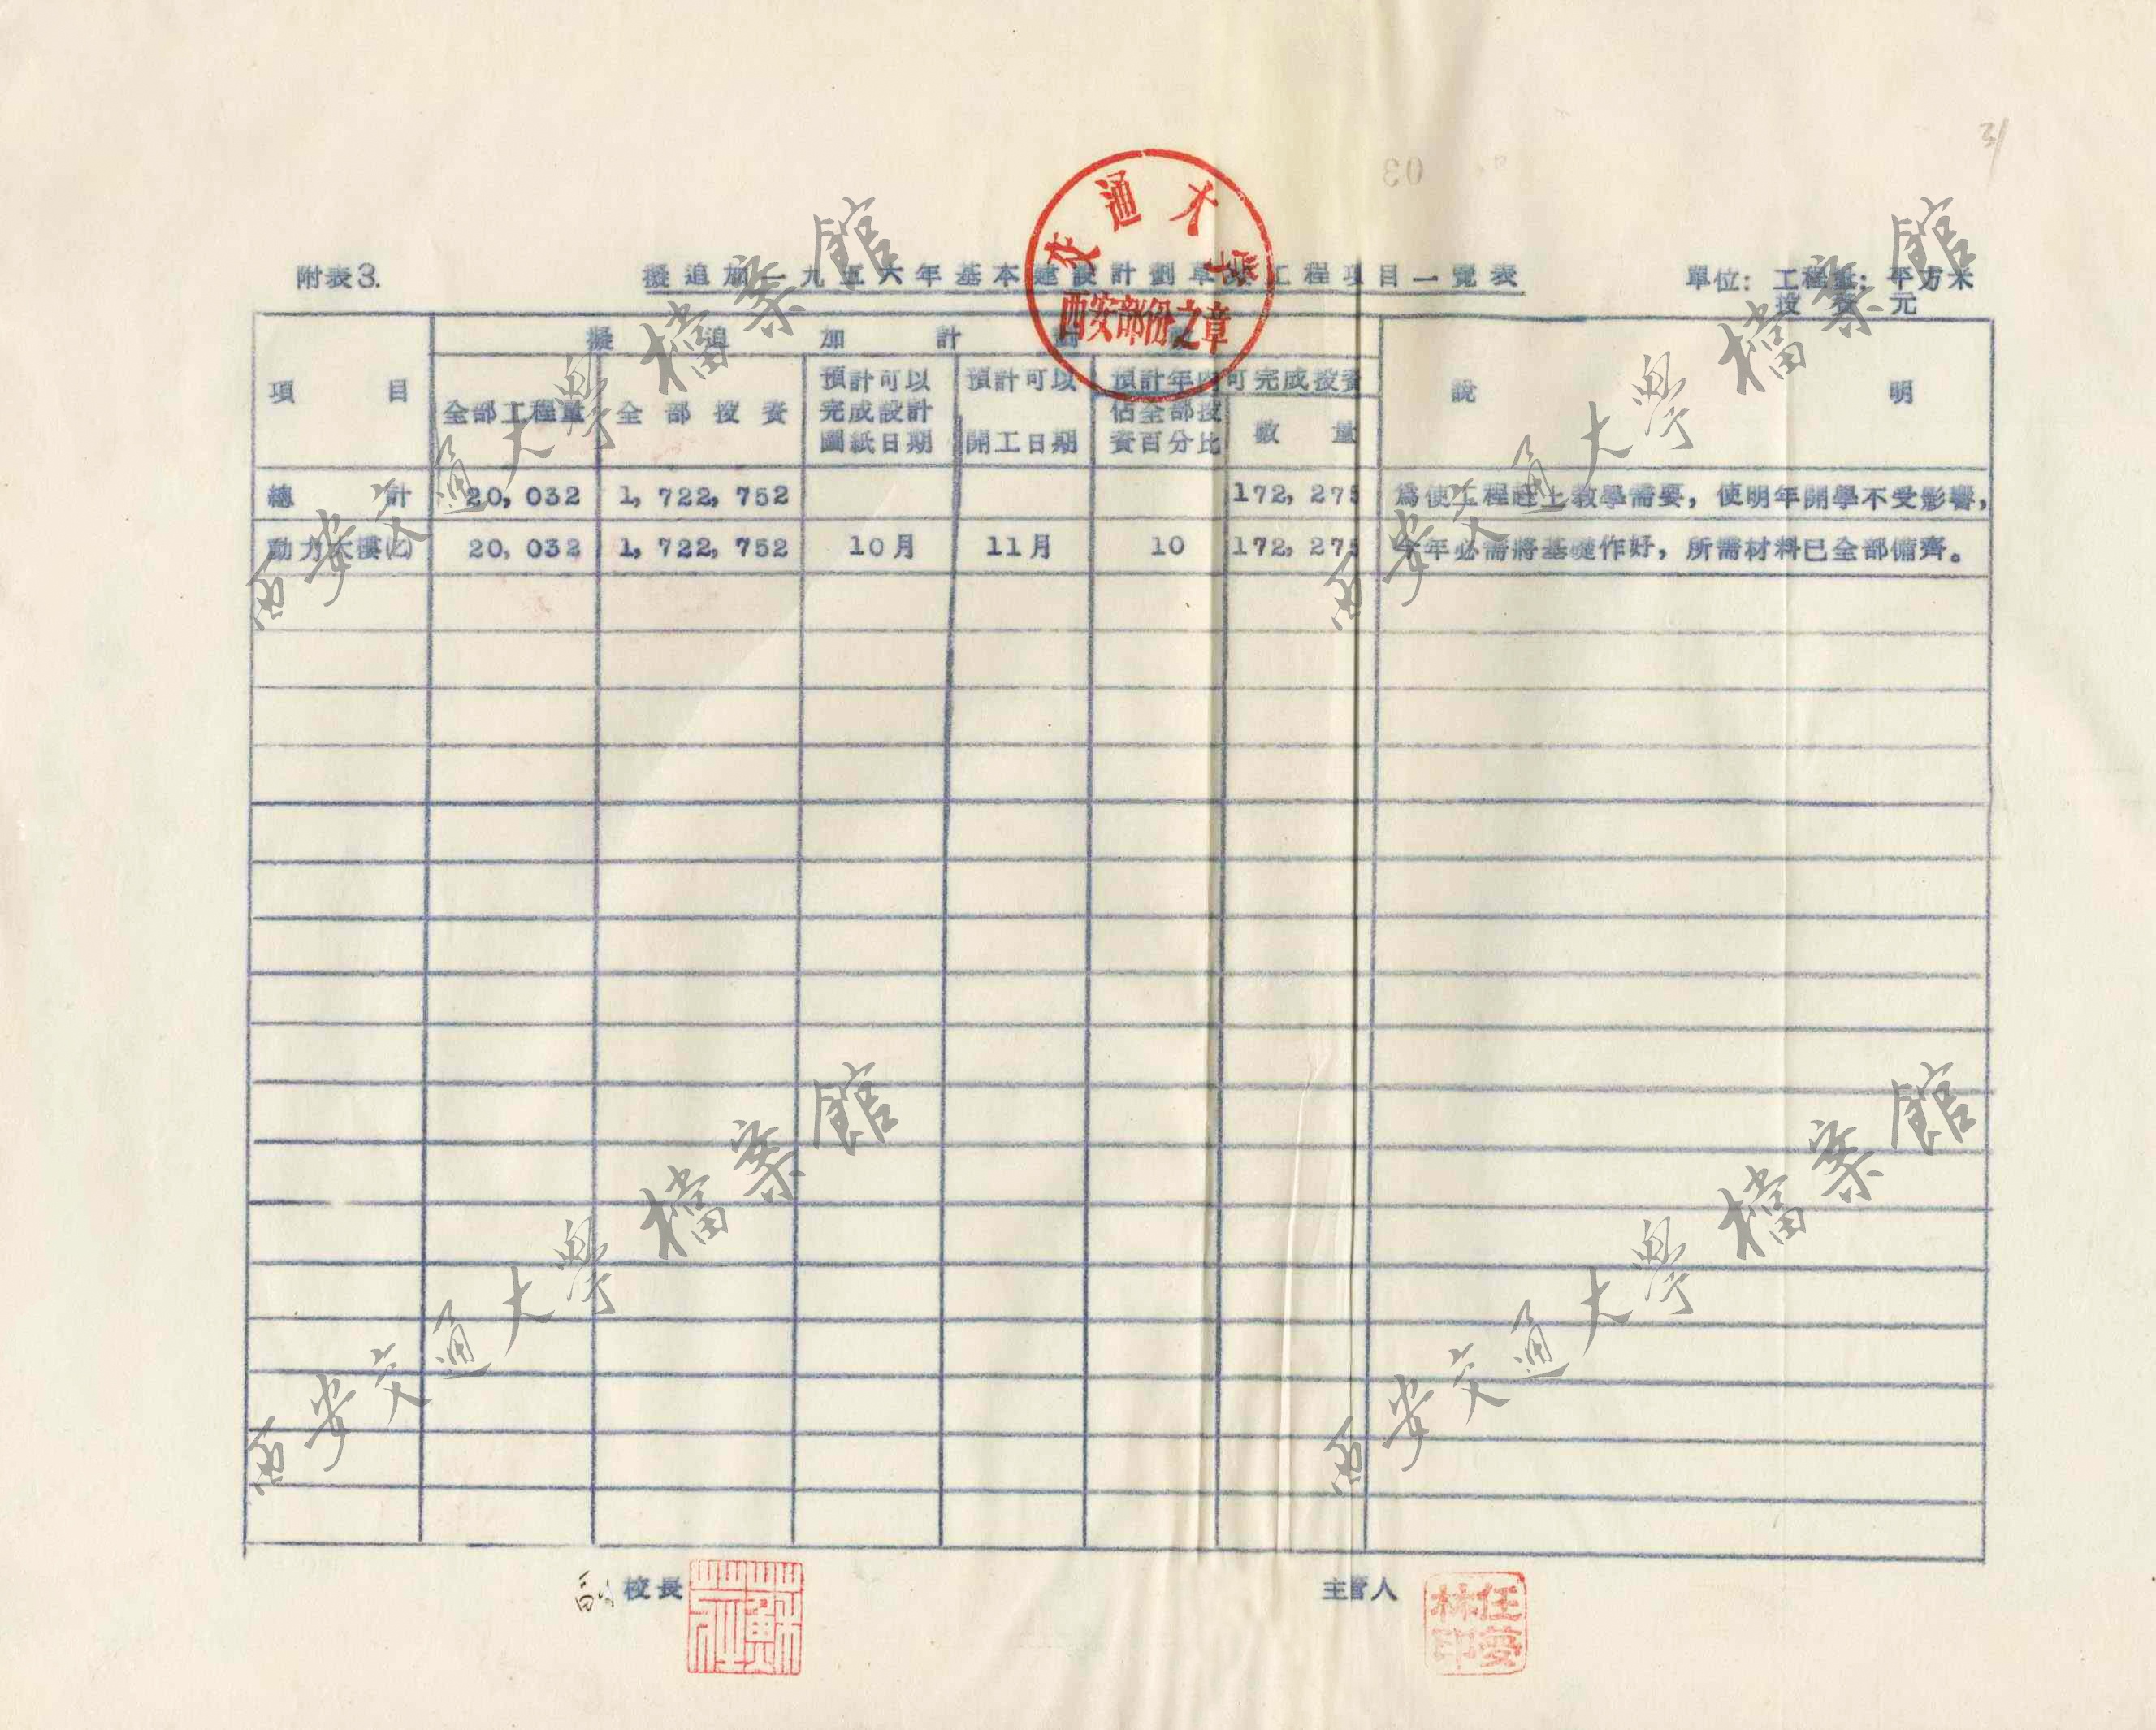 31
03
交通大學
西安部份之章
附表3.
擬追加一九五六年基本建設計劃草案工程項目一覽表
單位：工程量：平方米
投資 元
項目
擬追加計劃
說明
全部工程量
全部投資
預計可以完成設計圖紙日期
預計可以開工日期
預計年內可完成投資
佔全部投資百分比
數量
總計 20,032 1,722,752 172,275 為使工程趕上教學需要，使明年開學不受影響，
動力大樓(2) 20,032 1,722,752 10月 11月 10 172,275 今年必需將基礎作好，所需材料已全部備齊。
副校長
主管人
任夢林印
西安交通大學檔案館
西安交通大學檔案館
西安交通大學檔案館
西安交通大學檔案館